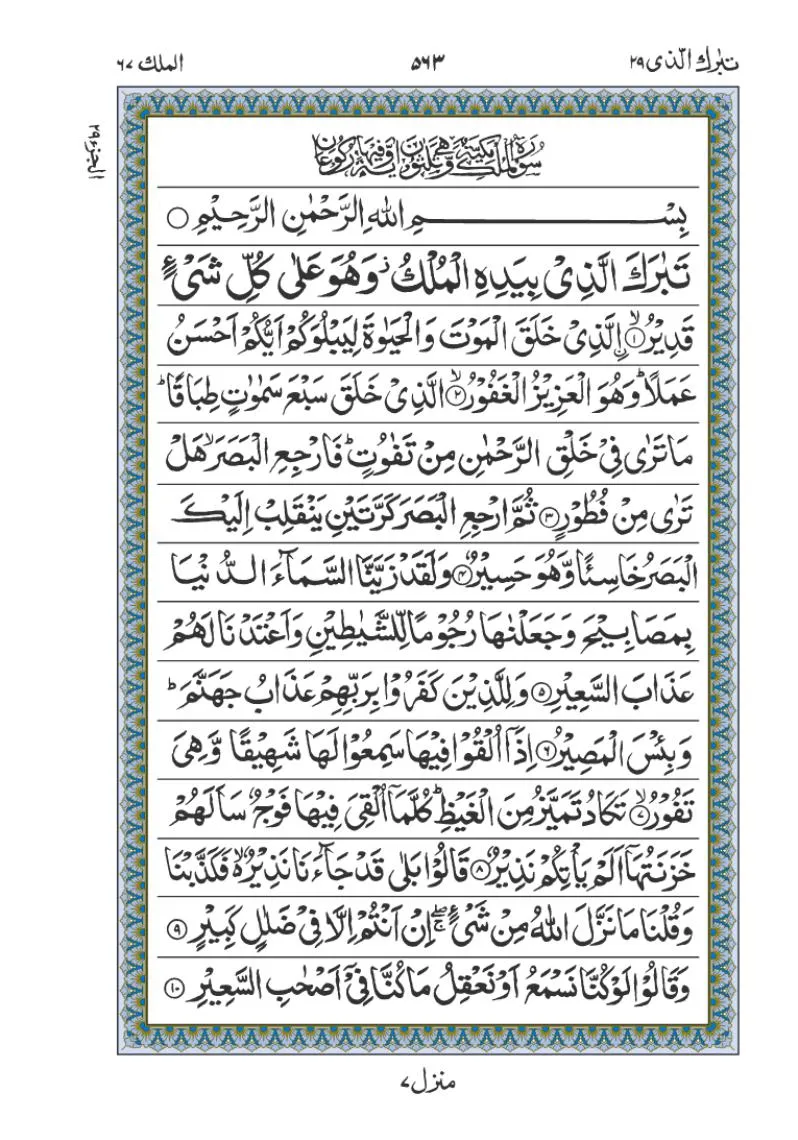 تبٰرك الّذى ٢٩
٥٦٣
الملك ٦٧
الجزء ٢٩
سُوْرَةُ الْمُلْكِ مَكِّيَّةٌ وَّهِيَ ثَلٰثُوْنَ اٰيَةً وَّفِيْهَا رُكُوْعَانِ
بِسْــــــــــمِ اللهِ الرَّحْمٰنِ الرَّحِيْمِ ○
تَبٰرَكَ الَّذِىْ بِيَدِهِ الْمُلْكُ ز وَهُوَ عَلٰى كُلِّ شَىْءٍ
قَدِيْرُۨ ۙ﴿١﴾ الَّذِىْ خَلَقَ الْمَوْتَ وَالْحَيٰوةَ لِيَبْلُوَكُمْ اَيُّكُمْ اَحْسَنُ
عَمَلًا ؕ وَهُوَ الْعَزِيْزُ الْغَفُوْرُ ۙ﴿٢﴾ الَّذِىْ خَلَقَ سَبْعَ سَمٰوٰتٍ طِبَاقًا ؕ
مَا تَرٰى فِىْ خَلْقِ الرَّحْمٰنِ مِنْ تَفٰوُتٍ ؕ فَارْجِعِ الْبَصَرَ ۙ هَلْ
تَرٰى مِنْ فُطُوْرٍ ﴿٣﴾ ثُمَّ ارْجِعِ الْبَصَرَ كَرَّتَيْنِ يَنْقَلِبْ اِلَيْكَ
الْبَصَرُ خَاسِئًا وَّهُوَ حَسِيْرٌ ﴿٤﴾ وَلَقَدْ زَيَّنَّا السَّمَآءَ الدُّنْيَا
بِمَصَابِيْحَ وَجَعَلْنٰهَا رُجُوْمًا لِّلشَّيٰطِيْنِ وَاَعْتَدْنَا لَهُمْ
عَذَابَ السَّعِيْرِ ﴿٥﴾ وَلِلَّذِيْنَ كَفَرُوْا بِرَبِّهِمْ عَذَابُ جَهَنَّمَ ؕ
وَبِئْسَ الْمَصِيْرُ ﴿٦﴾ اِذَاۤ اُلْقُوْا فِيْهَا سَمِعُوْا لَهَا شَهِيْقًا وَّهِىَ
تَفُوْرُ ۙ﴿٧﴾ تَكَادُ تَمَيَّزُ مِنَ الْغَيْظِ ؕ كُلَّمَاۤ اُلْقِىَ فِيْهَا فَوْجٌ سَاَلَهُمْ
خَزَنَتُهَاۤ اَلَمْ يَاْتِكُمْ نَذِيْرٌ ﴿٨﴾ قَالُوْا بَلٰى قَدْ جَآءَنَا نَذِيْرٌ ۙ۬ فَكَذَّبْنَا
وَقُلْنَا مَا نَزَّلَ اللهُ مِنْ شَىْءٍ ۚۖ اِنْ اَنْتُمْ اِلَّا فِىْ ضَلٰلٍ كَبِيْرٍ ﴿٩﴾
وَقَالُوْا لَوْ كُنَّا نَسْمَعُ اَوْ نَعْقِلُ مَا كُنَّا فِىْۤ اَصْحٰبِ السَّعِيْرِ ﴿١٠﴾
منزل ٧